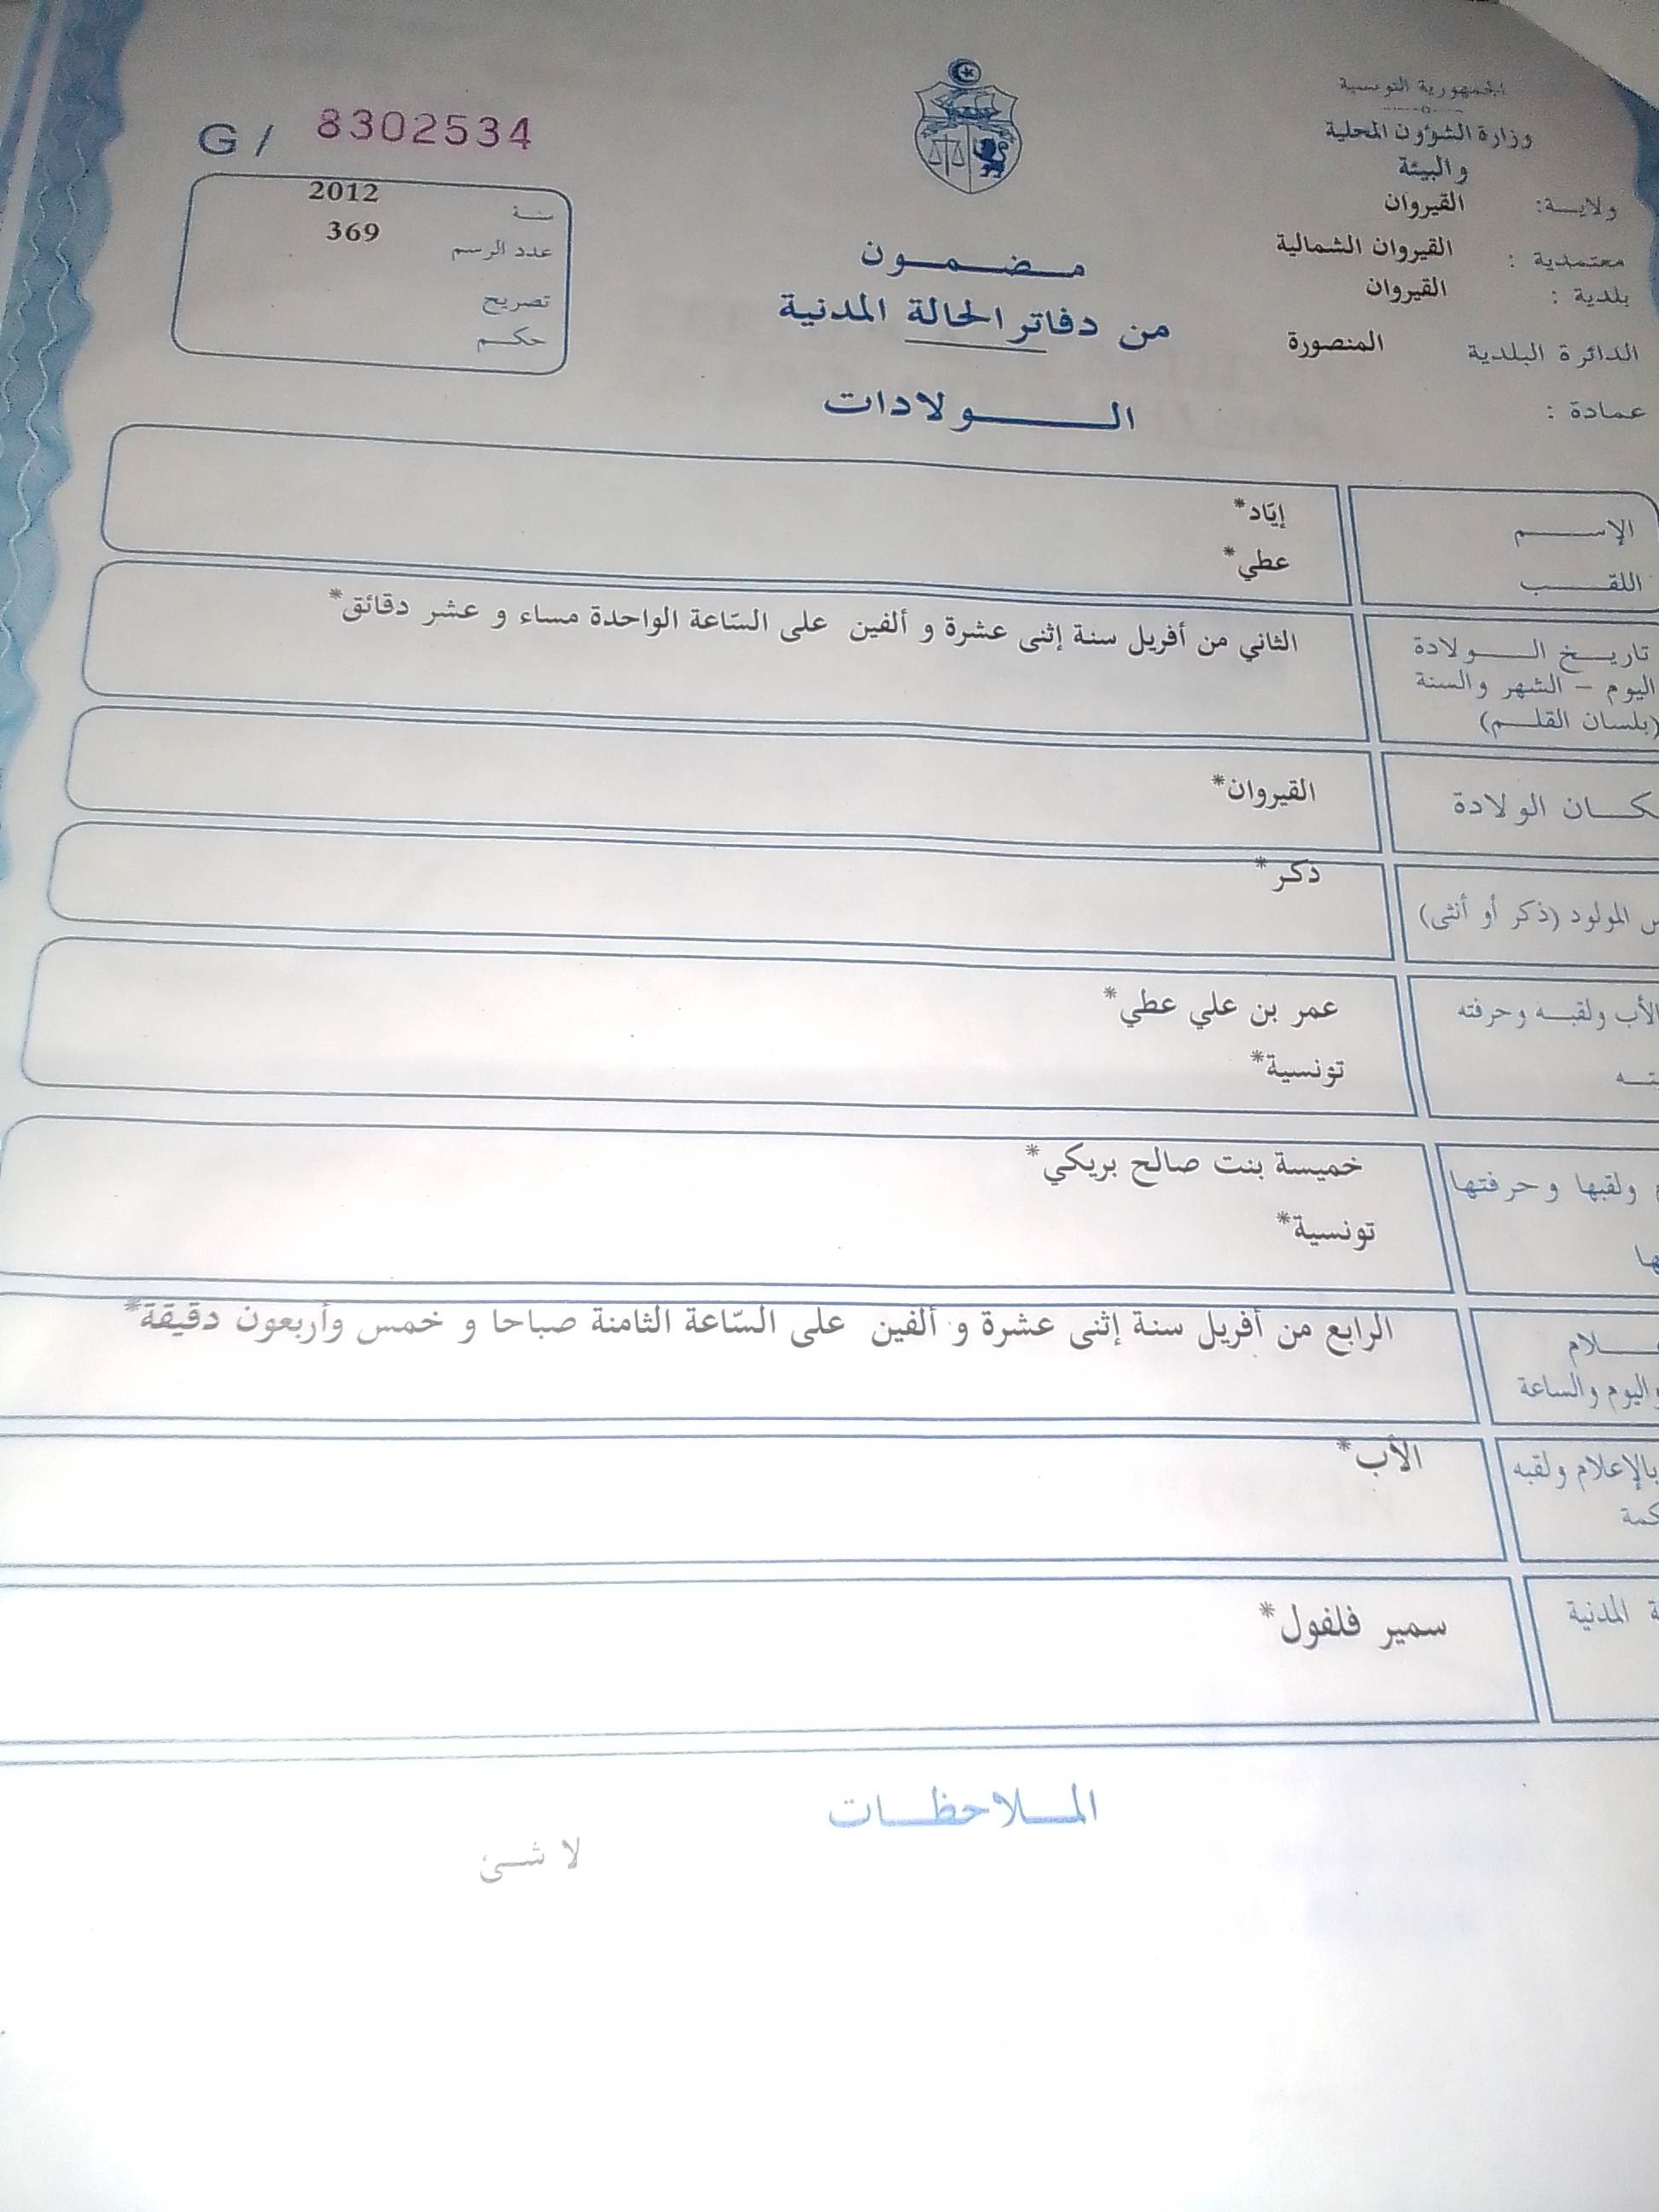 الجمهورية التونسية
وزارة الشؤون المحلية
والبيئة
ولاية: القيروان
معتمدية : القيروان الشمالية
بلدية : القيروان
الدائرة البلدية المنصورة
عمادة :
G / 8302534
سنة 2012
عدد الرسم 369
تصريح
حكم
مضمون
من دفاتر الحالة المدنية
الولادات
الإسم إيّاد*
اللقب عطي*
تاريخ الولادة الثاني من أفريل سنة إثنى عشرة و ألفين على السّاعة الواحدة مساء و عشر دقائق*
اليوم - الشهر والسنة
(بلسان القلم)
كان الولادة القيروان*
س المولود (ذكر أو أنثى) ذكر*
الأب ولقبه وحرفته عمر بن علي عطي*
تونسية*
ولقبها وحرفتها خميسة بنت صالح بريكي*
ها تونسية*
لام الرابع من أفريل سنة إثنى عشرة و ألفين على السّاعة الثامنة صباحا و خمس وأربعون دقيقة*
واليوم والساعة
بالإعلام ولقبه الأب*
كمة
ة المدنية سمير فلفول*
الملاحظات
لا شئ